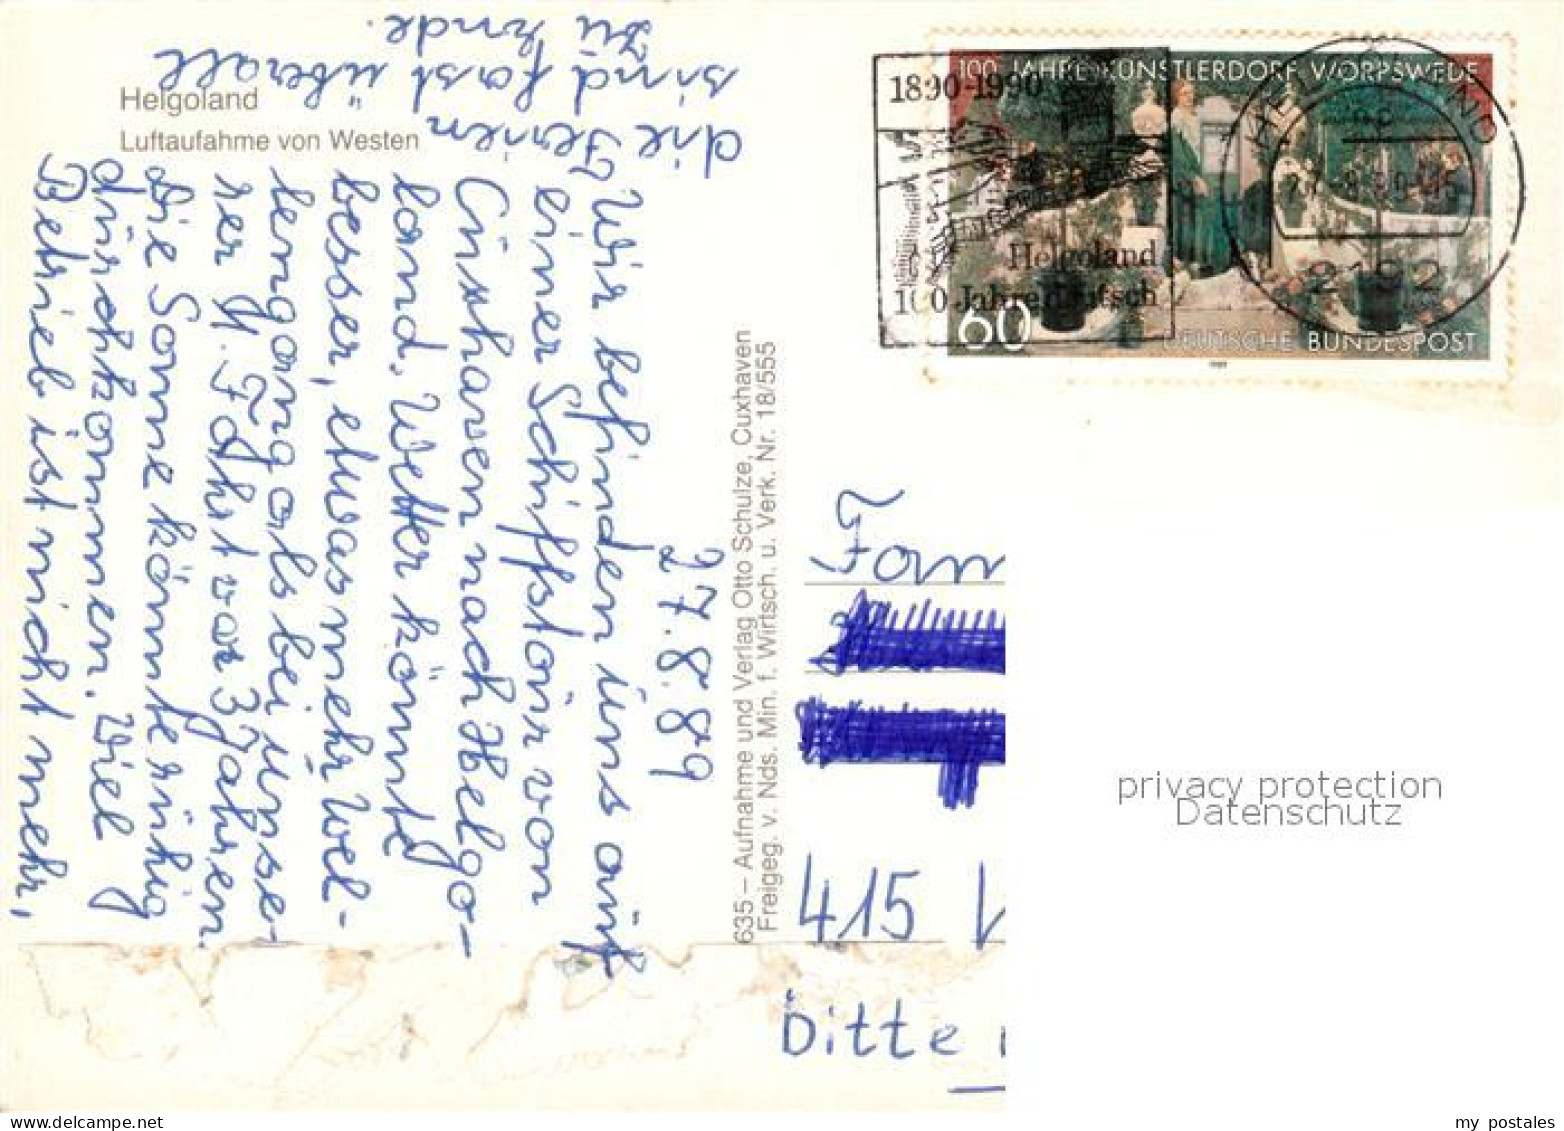 Helgoland
Luftaufahme von Westen
27.8.89
Wir befinden uns auf
einer Schiffstour von
Cuxhaven nach Helgo-
land. Wetter könnte
besser, etwas mehr Wel-
lengang als bei unse-
rer H. Fahrt vor 3 Jahren.
Die Sonne könnte ruhig
durchkommen. Viel
Betrieb ist nicht mehr,
die Ferien
sind fast überall
zu Ende.
635 – Aufnahme und Verlag Otto Schulze, Cuxhaven
Freigeg. v. Nds. Min. f. Wirtsch. u. Verk. Nr. 18/555
100 JAHRE KÜNSTLERDORF WORPSWEDE
60
DEUTSCHE BUNDESPOST
1989
1890-1990
Helgoland
100 Jahre deutsch
HELGOLAND
2192
Fam
415
bitte
privacy protection
Datenschutz
delcampe.net
my_postales